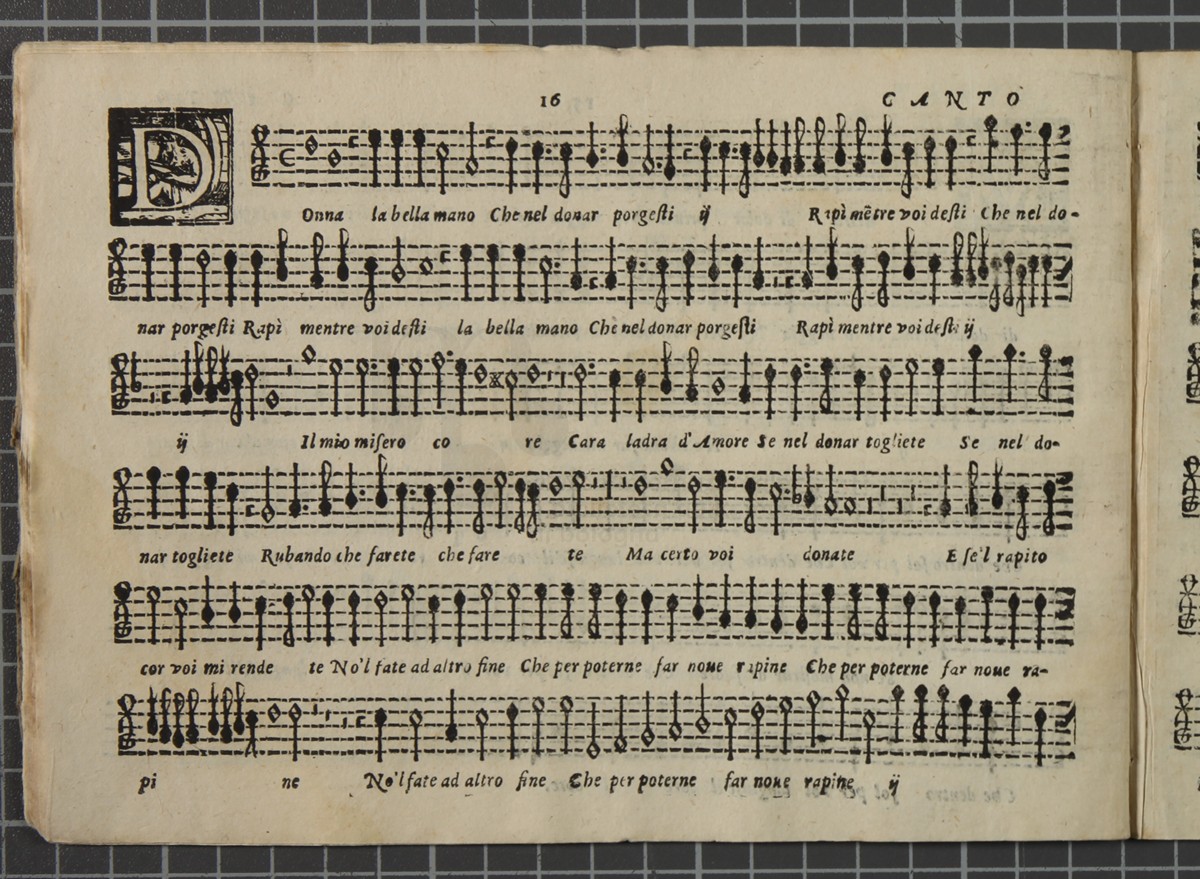 16 CANTO
DOnna la bella mano Che nel donar porgesti ij Rapì mẽtre voi desti Che nel do-
nar porgesti Rapì mentre voi desti la bella mano Che nel donar porgesti Rapì mentre voi desti ij
ij Il mio misero co re Cara ladra d'Amore Se nel donar togliete Se nel do-
nar togliete Rubando che farete che fare te Ma certo voi donate E se'l rapito
cor voi mi rende te No'l fate ad altro fine Che per poterne far noue rapine Che per poterne far noue ra-
pi ne No'l fate ad altro fine Che per poterne far noue rapine ij